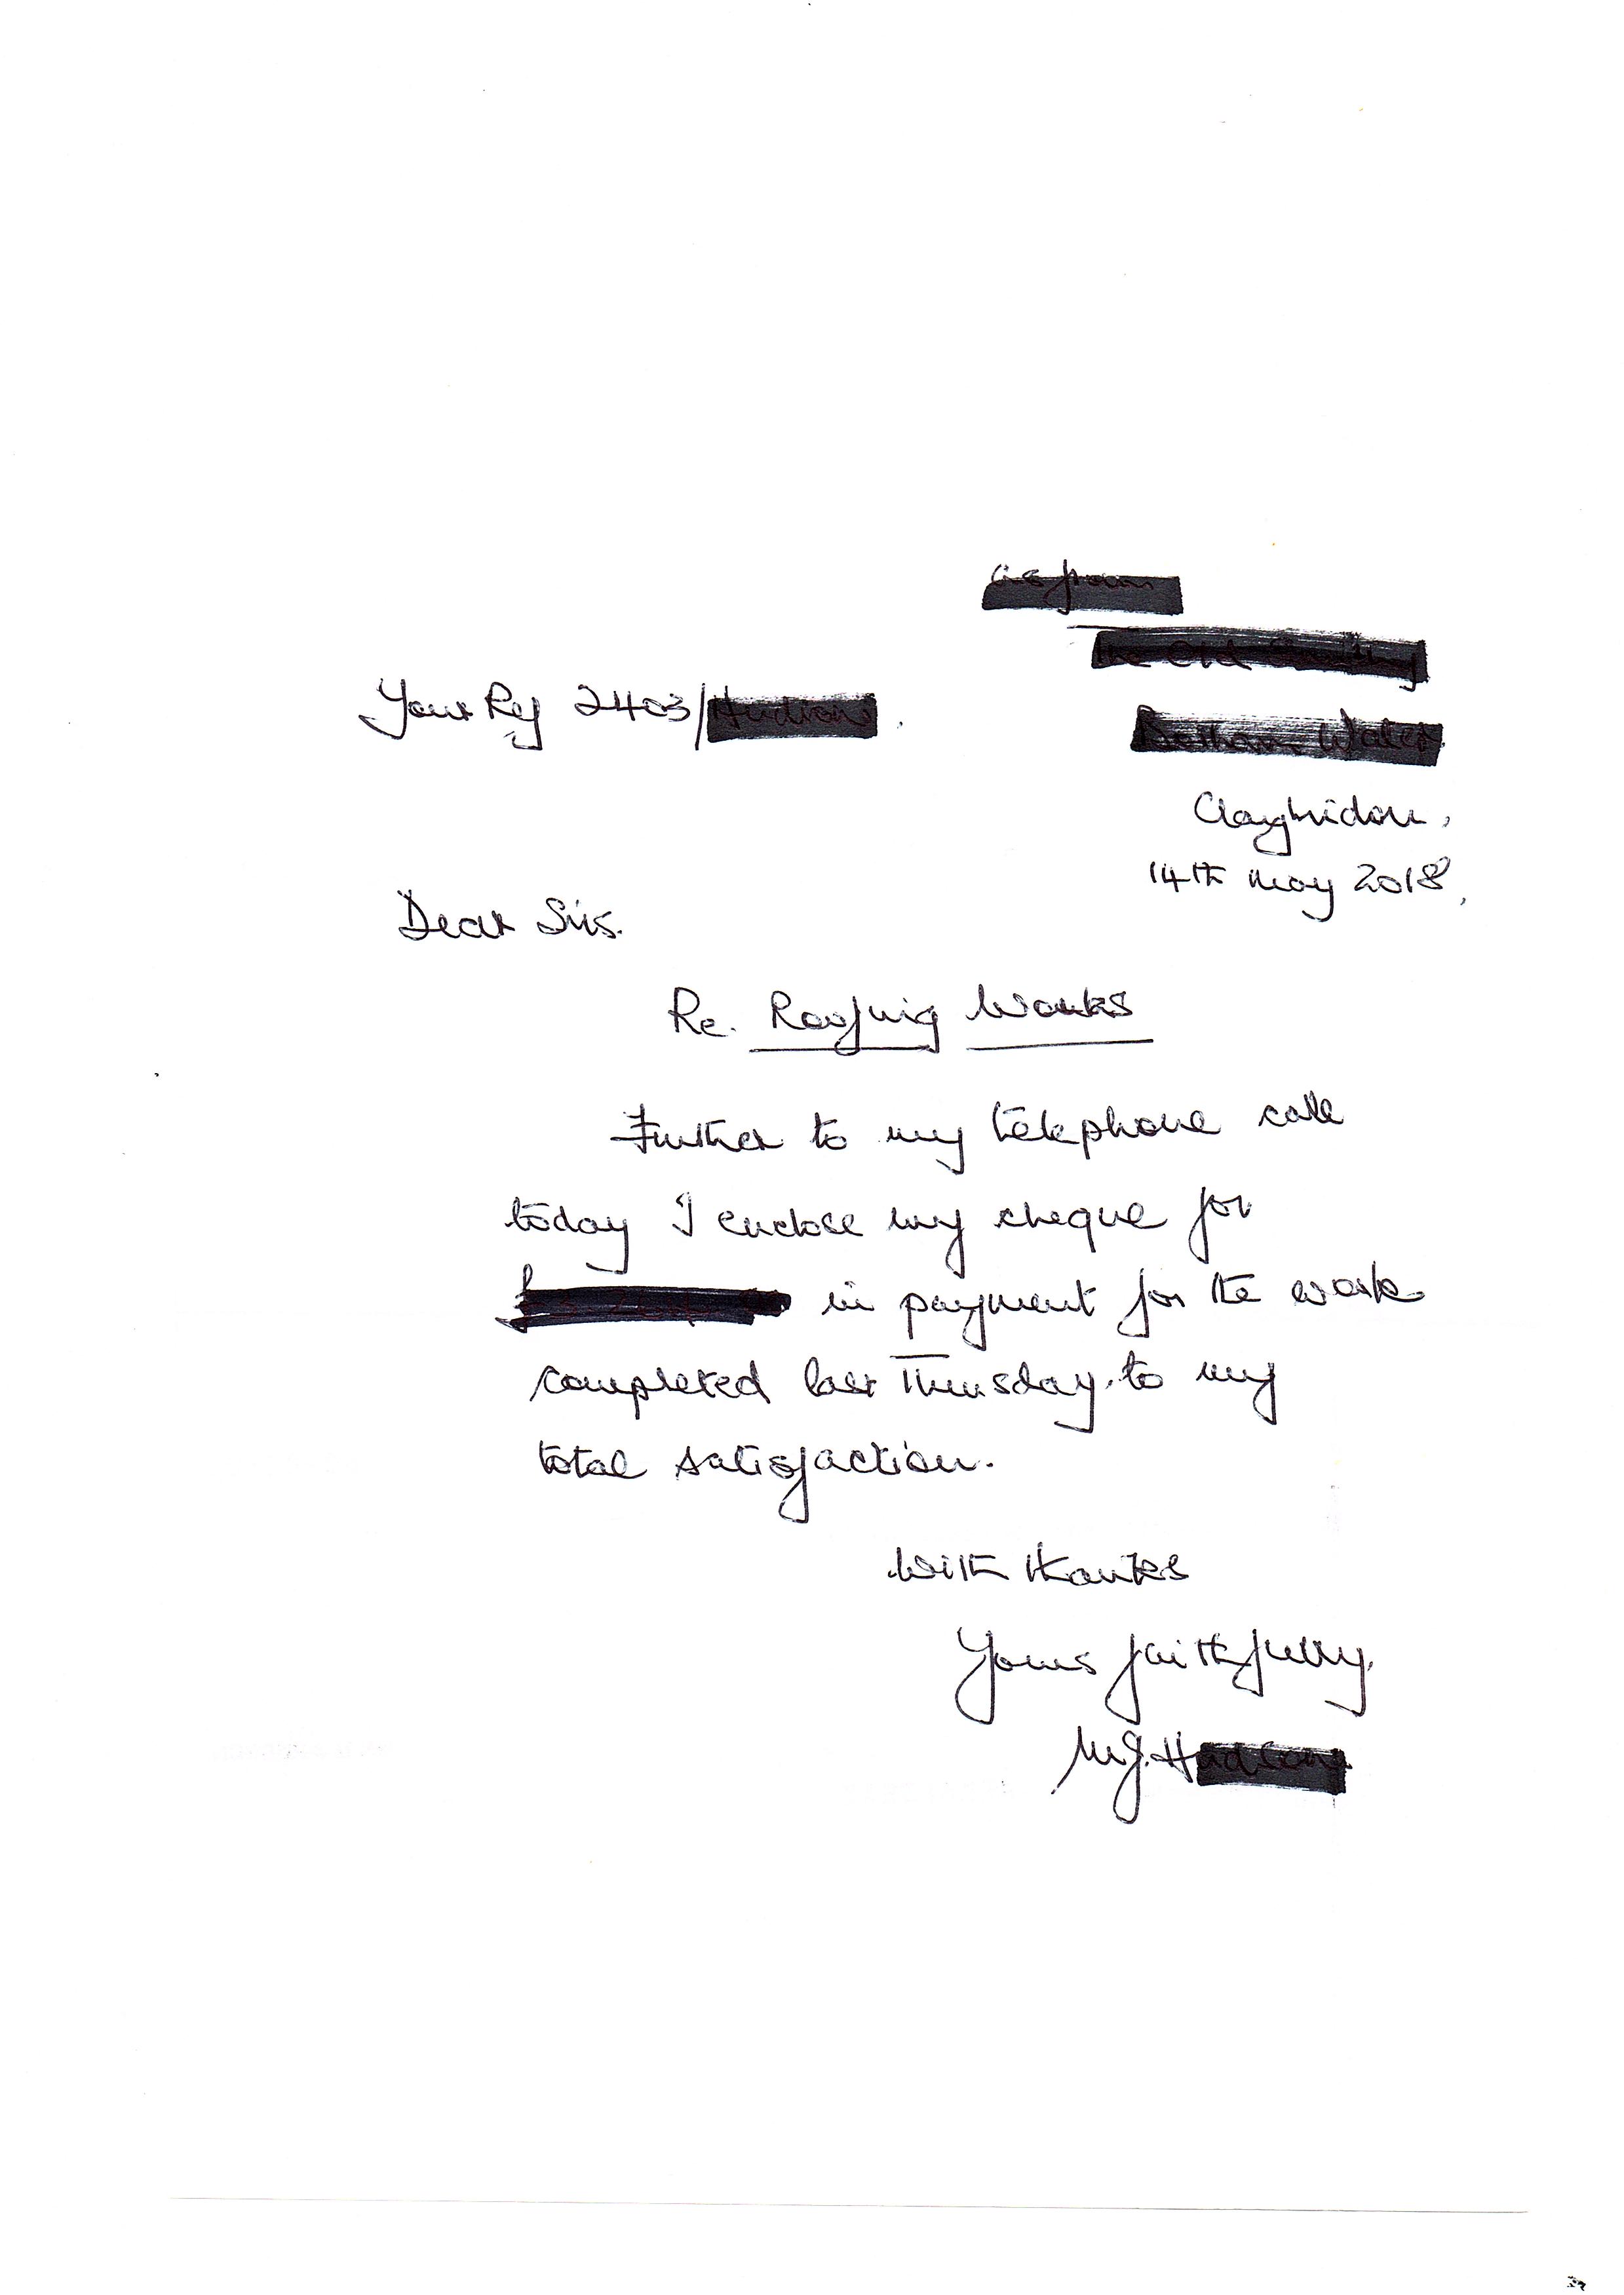 Your Ref 2403/
Clayhidon,
14th May 2018,
Dear Sirs.
Re. Roofing Works
Further to my telephone call
today I enclose my cheque for
in payment for the work
completed last Thursday. to my
total satisfaction.
With thanks
Yours faithfully.
M.J. H